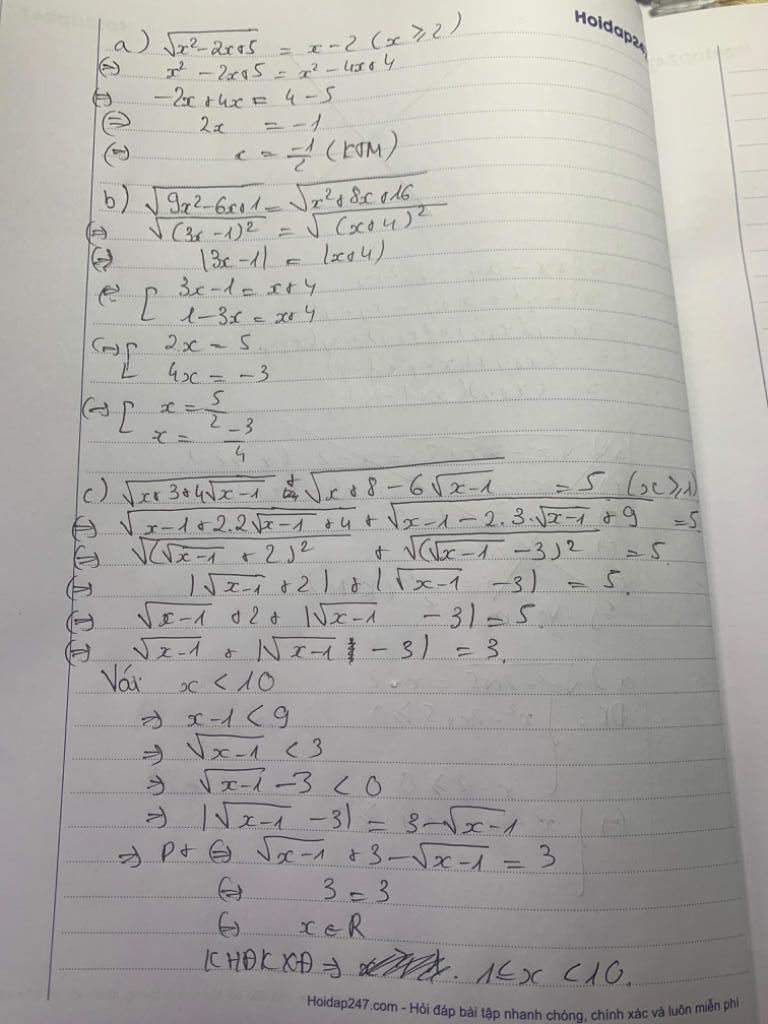 Hoidap247
a) √(x² - 2x + 5) = x - 2 (x ≥ 2)
⇔ x² - 2x + 5 = x² - 4x + 4
⇔ -2x + 4x = 4 - 5
⇔ 2x = -1
⇔ x = -1/2 (KTM)
b) √(9x² - 6x + 1) = √(x² + 8x + 16)
⇔ √((3x - 1)²) = √((x + 4)²)
⇔ |3x - 1| = |x + 4|
⇔ [ 3x - 1 = x + 4
1 - 3x = x + 4
⇔ [ 2x = 5
4x = -3
⇔ [ x = 5/2
x = -3/4
c) √(x + 3 + 4√(x-1)) + √(x + 8 - 6√(x-1)) = 5 (x ≥ 1)
⇔ √(x - 1 + 2.2√(x-1) + 4) + √(x - 1 - 2.3.√(x-1) + 9) = 5
⇔ √((√(x-1) + 2)²) + √((√(x-1) - 3)²) = 5
⇔ |√(x-1) + 2| + |√(x-1) - 3| = 5.
⇔ √(x-1) + 2 + |√(x-1) - 3| = 5.
⇔ √(x-1) + |√(x-1) - 3| = 3.
Với x < 10
⇒ x - 1 < 9
⇒ √(x-1) < 3
⇒ √(x-1) - 3 < 0
⇒ |√(x-1) - 3| = 3 - √(x-1)
⇒ Pt ⇔ √(x-1) + 3 - √(x-1) = 3
⇔ 3 = 3
⇔ x ∈ R
KHĐKXĐ ⇒ 1 ≤ x < 10.
Hoidap247.com - Hỏi đáp bài tập nhanh chóng, chính xác và luôn miễn phí